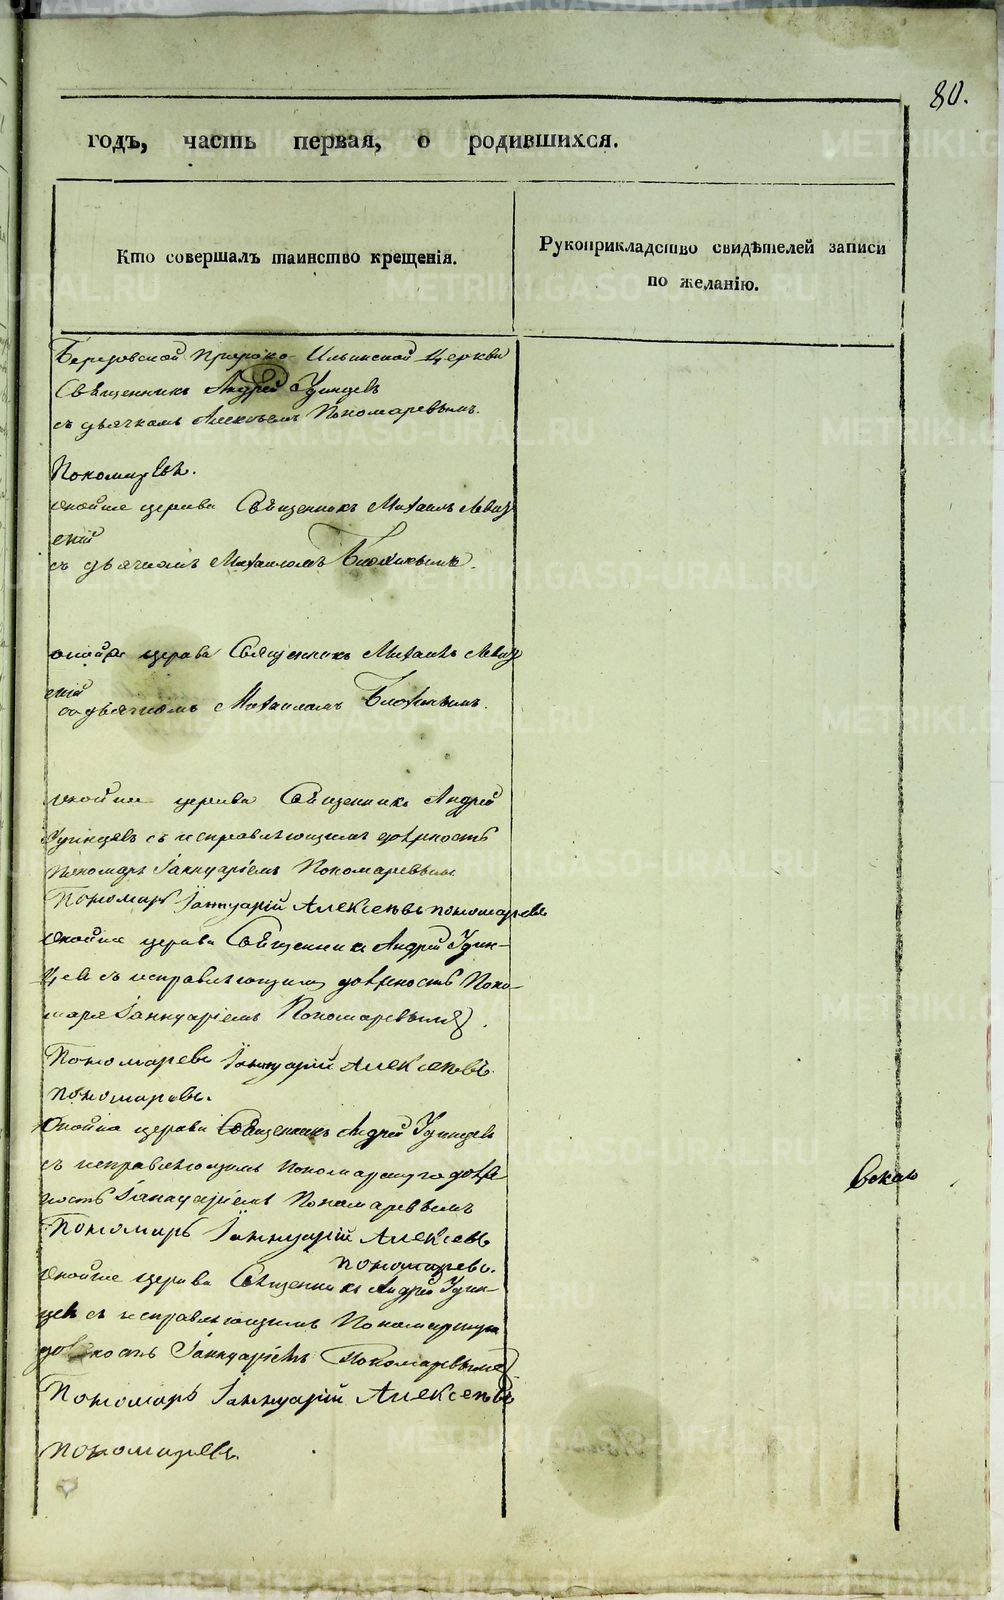 80.
годъ, часть первая, о родившихся.
Кто совершалъ таинство крещенія.
Рукоприкладство свидѣтелей записи
по желанію.
Березовской Пророко-Ильинской Церкви
Священникъ Андрей Удинцевъ
съ дьячкомъ Алексѣемъ Пономаревымъ.
Пономаревъ.
оной же церкви Священникъ Михаилъ
скій
съ дьячкомъ Михаиломъ
оной же церкви Священникъ Михаилъ
скій
съ дьячкомъ Михаиломъ
оной же церкви Священникъ Андрей
Удинцевъ съ исправляющимъ должность
Пономаря Іаннуаріемъ Пономаревымъ
Пономарь Іаннуарій Алексѣевъ пономаревъ
оной же церкви Священникъ Андрей Удин-
цевъ съ исправляющимъ должность Поно-
маря Іаннуаріемъ Пономаревымъ.
Пономаревъ Іаннуарій Алексѣевъ
пономаревъ.
оной же церкви Священникъ Андрей Удинцевъ
съ исправляющимъ пономарскую долж
ность Іаннуаріемъ Пономаревымъ
Пономарь Іаннуарій Алексѣевъ
пономаревъ.
оной же церкви Священникъ Андрей Удин-
цевъ съ исправляющимъ Пономарскую
должность Іаннуаріемъ Пономаревымъ
Пономарь Іаннуарій Алексѣевъ
пономаревъ.
METRIKI.GASO-URAL.RU